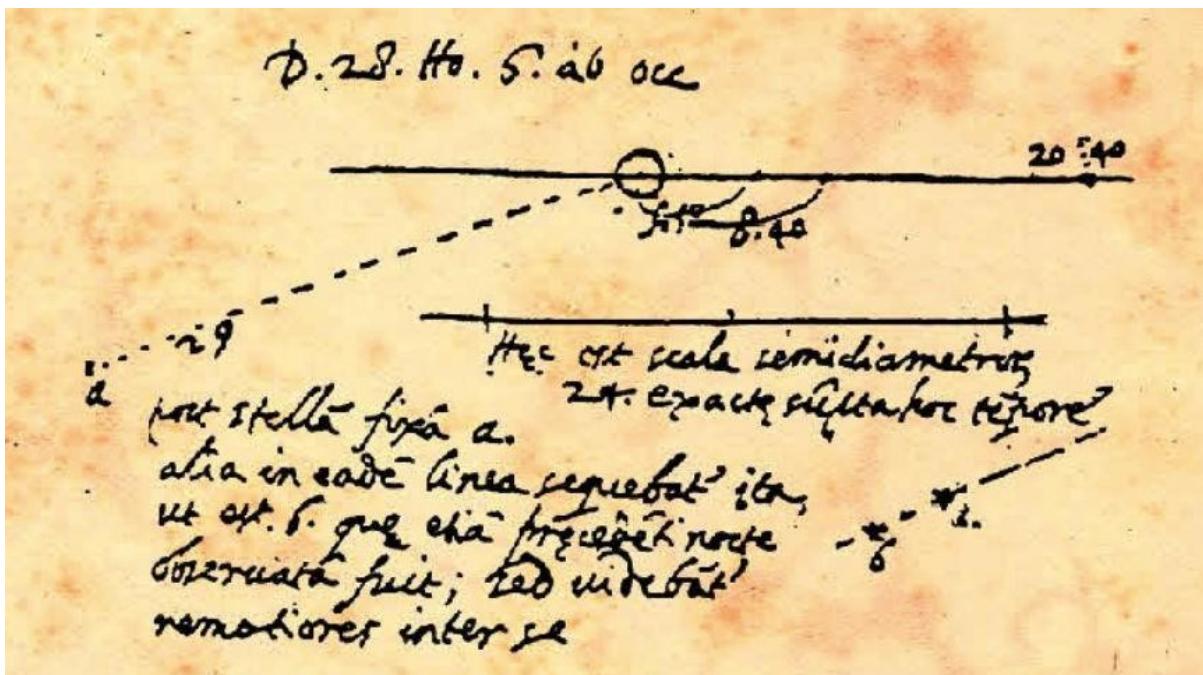 D. 28. Ho. 6. ab occ
20 : 40
8.40
29
a
Hęc est scala semidiametrorꝫ
24. exactę sūpta hoc tēpore
post stellā fixā a.
alia in eadē linea sequebat' ita,
ut est. b. quę etiā pręcedēti nocte
observata fuit; sed videbāt'
remotiores inter se
b